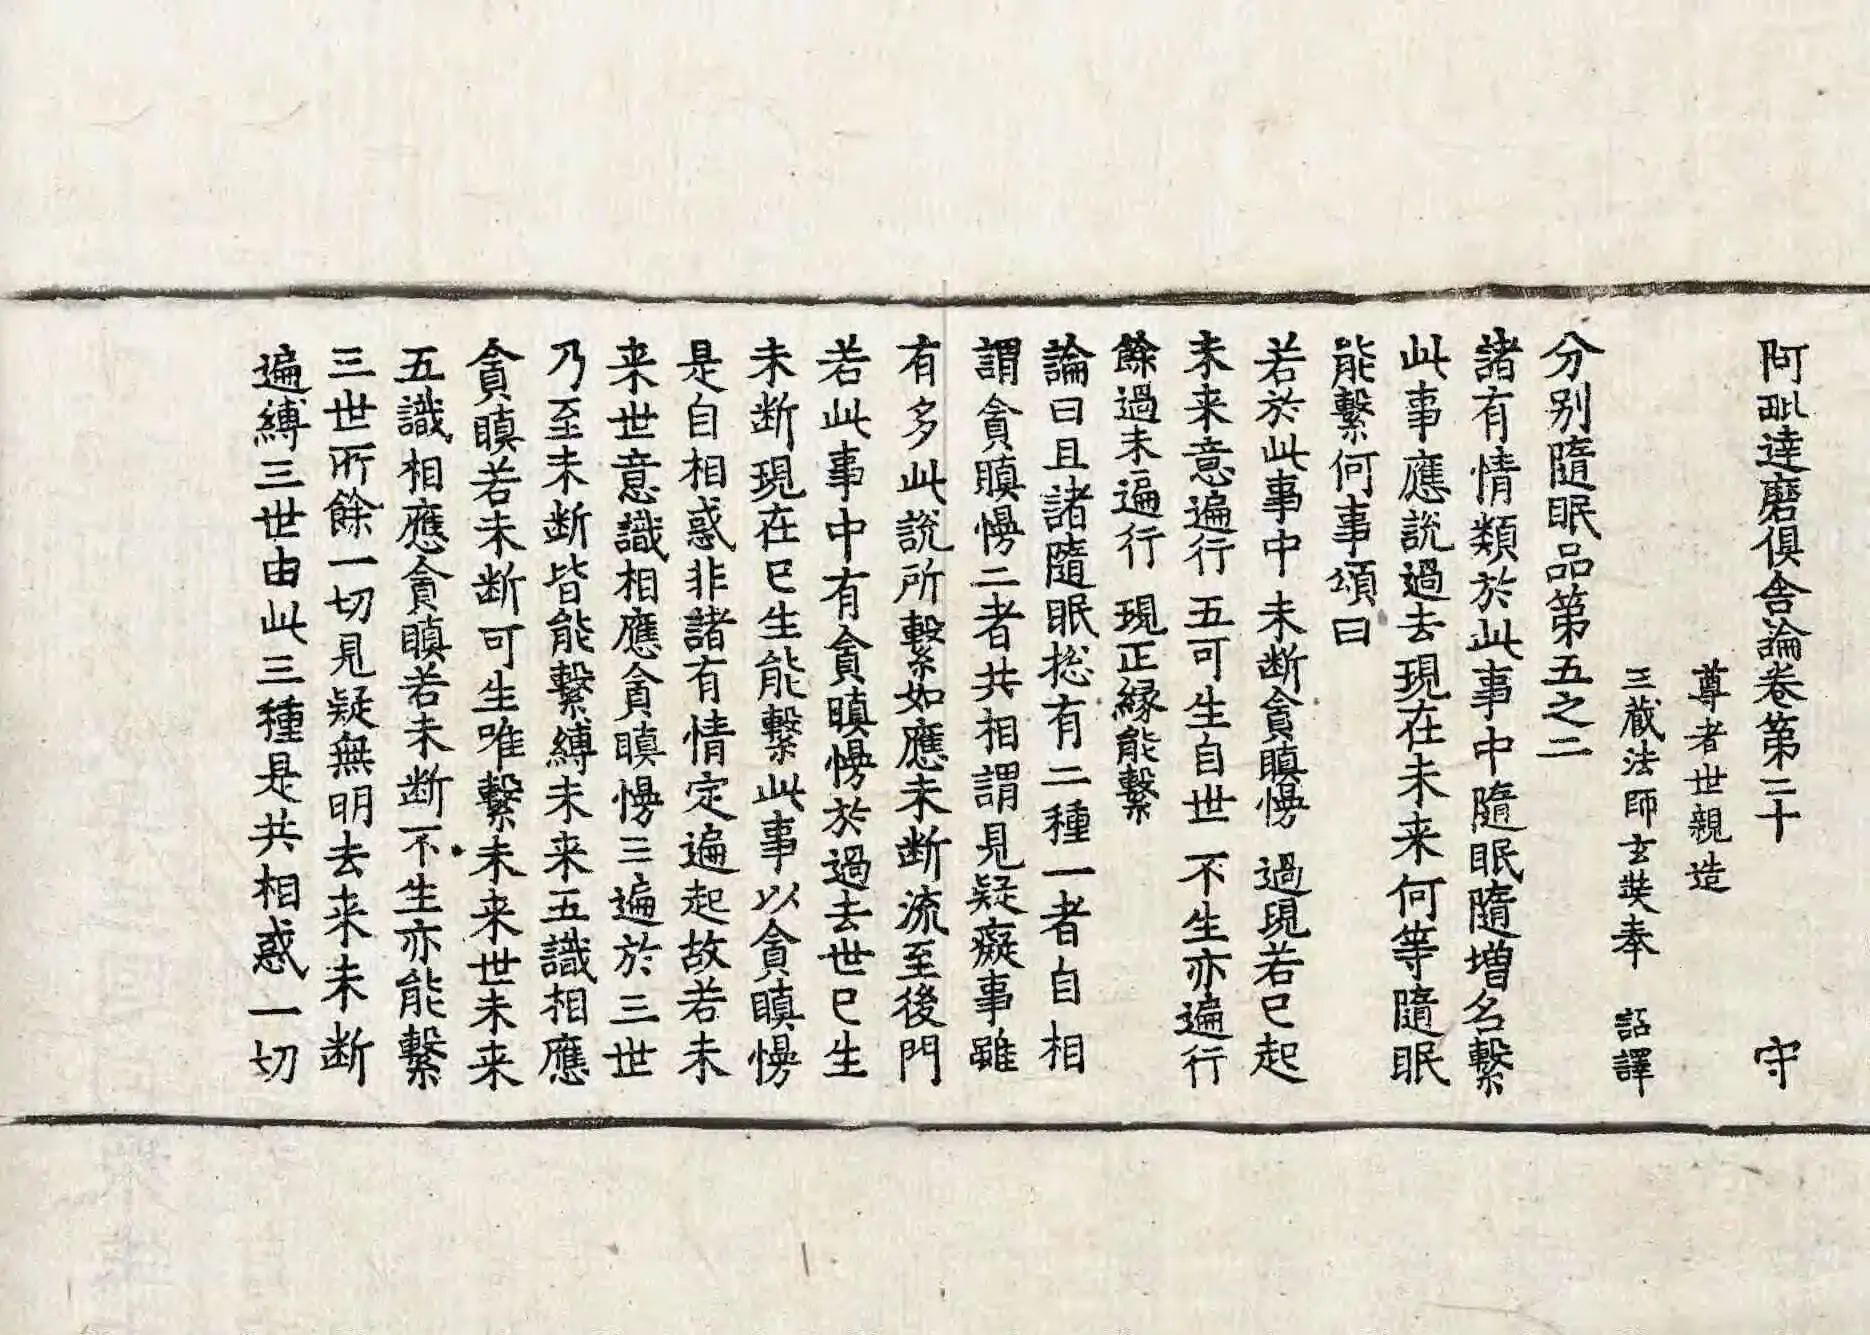 阿毗達磨俱舍論卷第二十 守
尊者世親造
三蔵法師玄奘奉 詔譯
分別隨眠品第五之二
諸有情類於此事中隨眠隨增名繫
此事應說過去現在未来何等隨眠
能繫何事頌曰
若於此事中 未断貪瞋慢 過現若已起
未来意遍行 五可生自世 不生亦遍行
餘過未遍行 現正緣能繫
論曰且諸隨眠捴有二種一者自相
謂貪瞋慢二者共相謂見疑癡事雖
有多此說所繫如應未断流至後門
若此事中有貪瞋慢於過去世已生
未断現在已生能繫此事以貪瞋慢
是自相惑非諸有情定遍起故若未
来世意識相應貪瞋慢三遍於三世
乃至未断皆能繫縛未来五識相應
貪瞋若未断可生唯繫未来世未来
五識相應貪瞋若未断不生亦能繫
三世所餘一切見疑無明去来未断
遍縛三世由此三種是共相惑一切